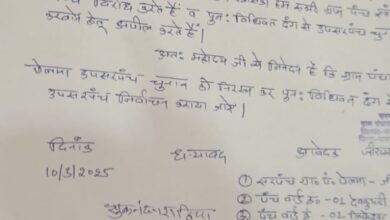 विरोध करते हैं व पुनः विधिवत ढंग से उपसरपंच चु
करवाने हेतु अपील करते हैं।
अतः महोदय जी से निवेदन है कि ग्राम पंचा
पेलमा उपसरपंच चुनाव को निरस्त कर पुनः विधिवत ढंग से
उपसरपंच निर्वाचन कराया जावे।
दिनांक
10/3/2025
धन्यवाद
आवेदक
① सरपंच ग्रा० पं० पेलमा -
② पंच वार्ड क्र० -01
पंच वार्ड क्र० -02